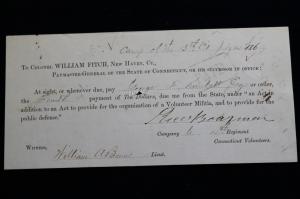 Camp of the 5th Ct 186
To Colonel WILLIAM FITCH, New Haven, Ct.,
Paymaster-General of the State of Connecticut, or his successor in office:
At sight, or whenever due, pay or order,
the payment of Ten Dollars, due me from the State, under "an Act in
addition to an Act to provide for the organization of a Volunteer Militia, and to provide for the
public defense."
Boardman
Company Regiment
Connecticut Volunteers.
Witness,
William A Lieut.